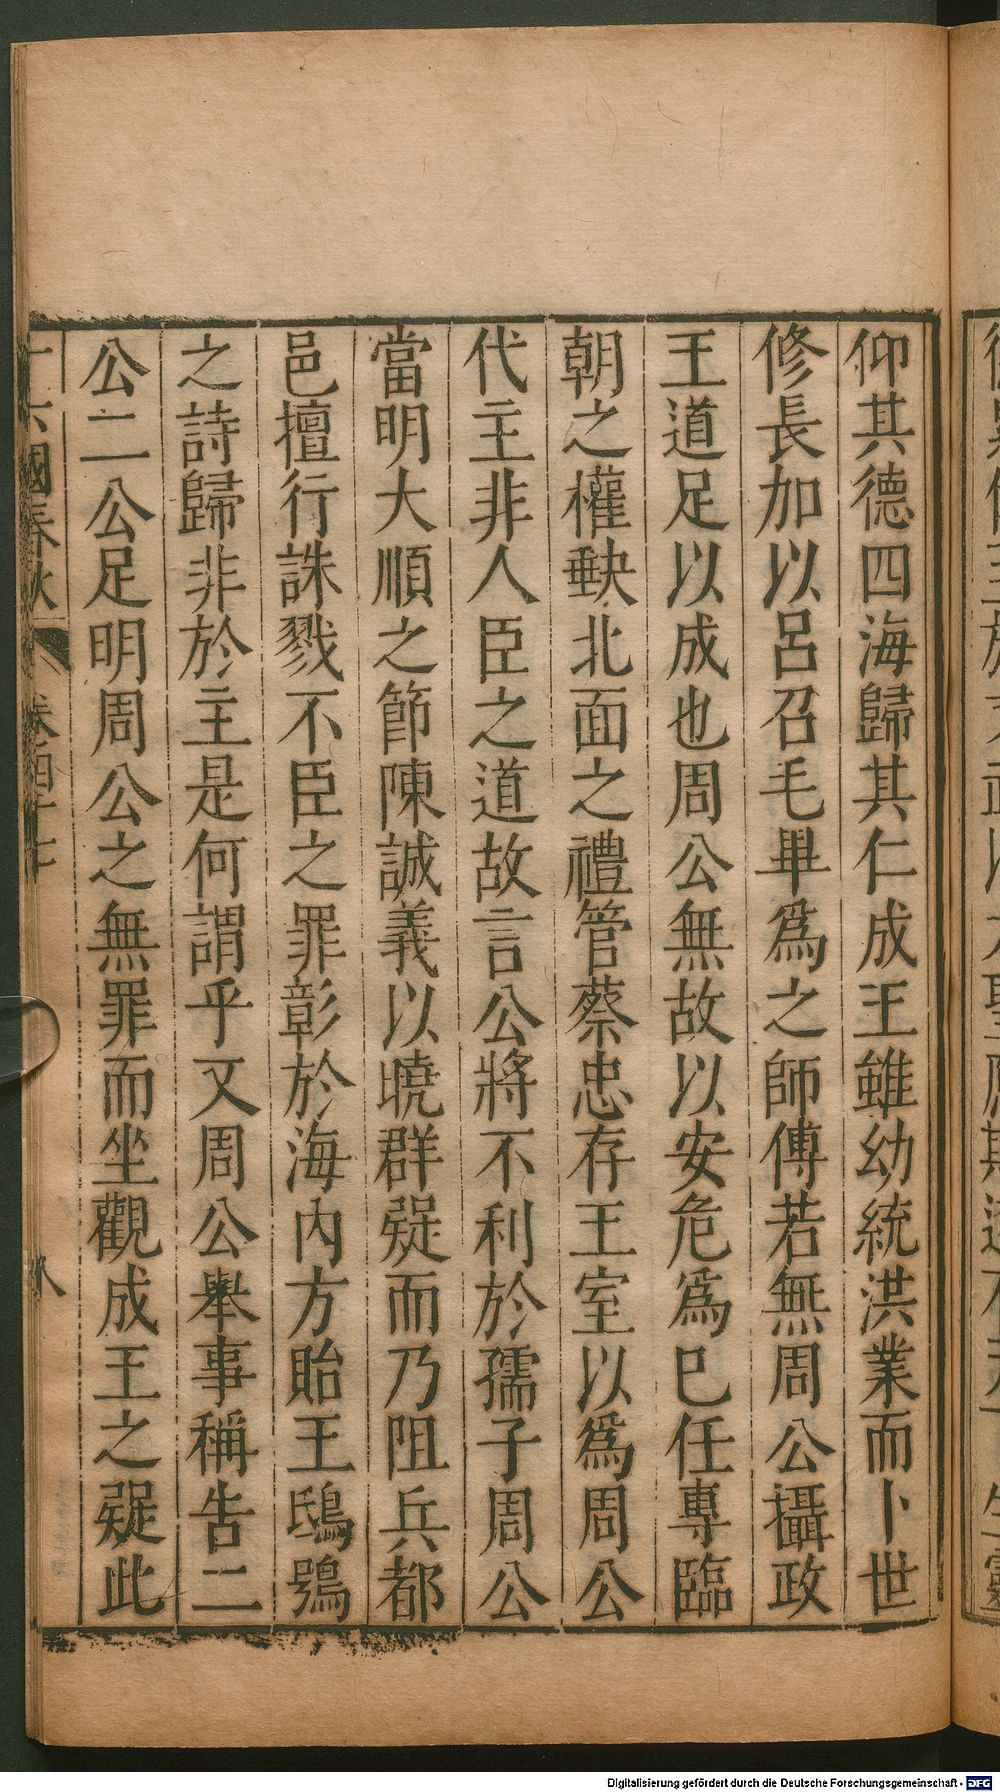 仰其德四海歸其仁成王雖幼統洪業而卜世
修長加以呂召毛畢爲之師傅若無周公攝政
王道足以成也周公無故以安危爲已任專臨
朝之權缺北面之禮管蔡忠存王室以爲周公
代主非人臣之道故言公將不利於孺子周公
當明大順之節陳誠義以曉群疑而乃阻兵都
邑擅行誅戮不臣之罪彰於海內方貽王鴟鴞
之詩歸非於主是何謂乎又周公舉事稱告二
公二公足明周公之無罪而坐觀成王之疑此
十六國春秋
卷四十七
八
Digitalisierung gefördert durch die Deutsche Forschungsgemeinschaft - DFG